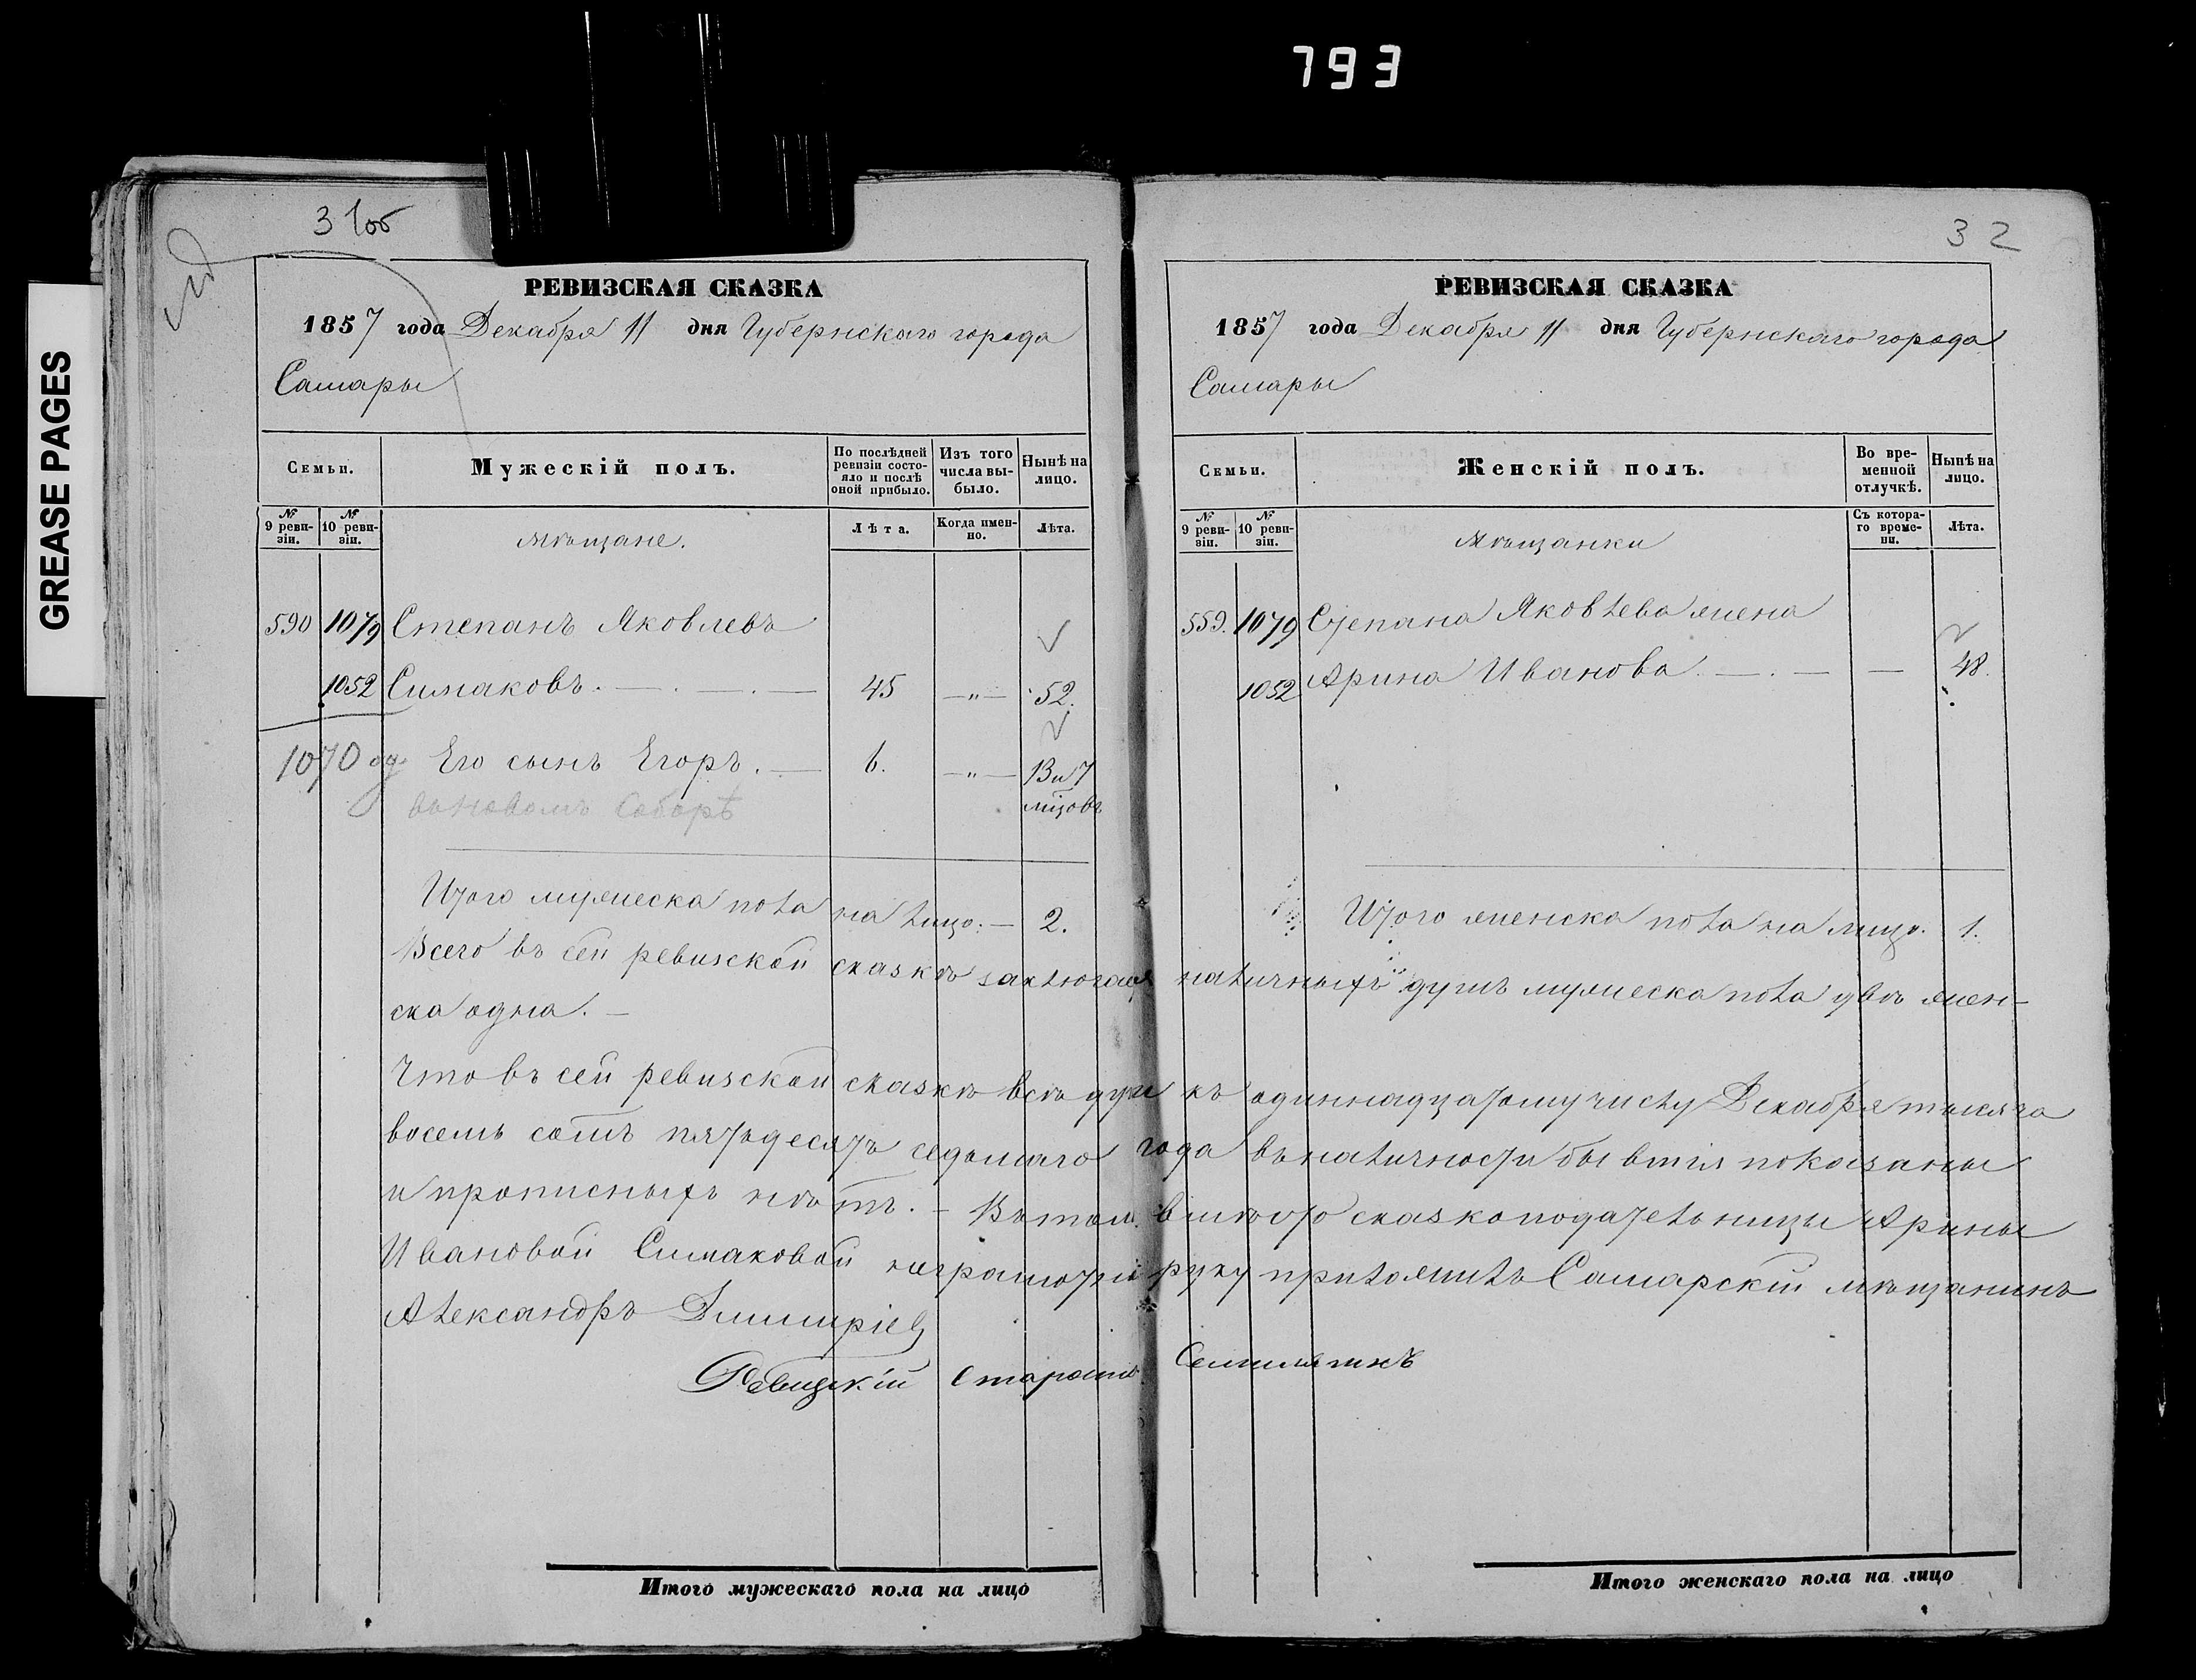 793
GREASE PAGES
31об
РЕВИЗСКАЯ СКАЗКА
1857 года Декабря 11 дня Губернскаго города
Самары
Семьи.
Мужескій полъ.
По послѣдней ревизіи состояло и послѣ оной прибыло.
Изъ того числа выбыло.
Нынѣ на лицо.
№ 9 ревизіи.
№ 10 ревизіи.
мѣщане.
Лѣта.
Когда именно.
Лѣта.
590 1079 Степанъ Яковлевъ
1052 Симаковъ. — . — . — 45 —"— 52.
1070 Его сынъ Егоръ. — 6. —"— 13 и 7
въ новомъ Соборѣ мцовъ
Итого мужеска пола на лицо. — 2.
32
РЕВИЗСКАЯ СКАЗКА
1857 года Декабря 11 дня Губернскаго города
Самары
Семьи.
Женскій полъ.
Во временной отлучкѣ.
Нынѣ на лицо.
№ 9 ревизіи.
№ 10 ревизіи.
мѣщанки
Съ котораго времени.
Лѣта.
559. 1079 Степана Яковлева жена
1052 Арина Иванова. — . — — 48.
Итого женска пола на лицо. 1.
Всего въ сей ревизской сказкѣ заключается наличныхъ душъ мужеска пола двѣ жен-
ска одна. —
Что въ сей ревизской сказкѣ всѣ души къ одиннадцатому числу Декабря тысяча
восемь сотъ пятьдесятъ седьмаго года въ наличности бывшія показаны
и прописныхъ нѣтъ. — Въ томъ вмѣсто сказкоподательницы Арины
Ивановой Симаковой неграмотной руку приложилъ Самарскій мѣщанинъ
Александръ Дмитріев
Староста
Итого мужескаго пола на лицо
Итого женскаго пола на лицо